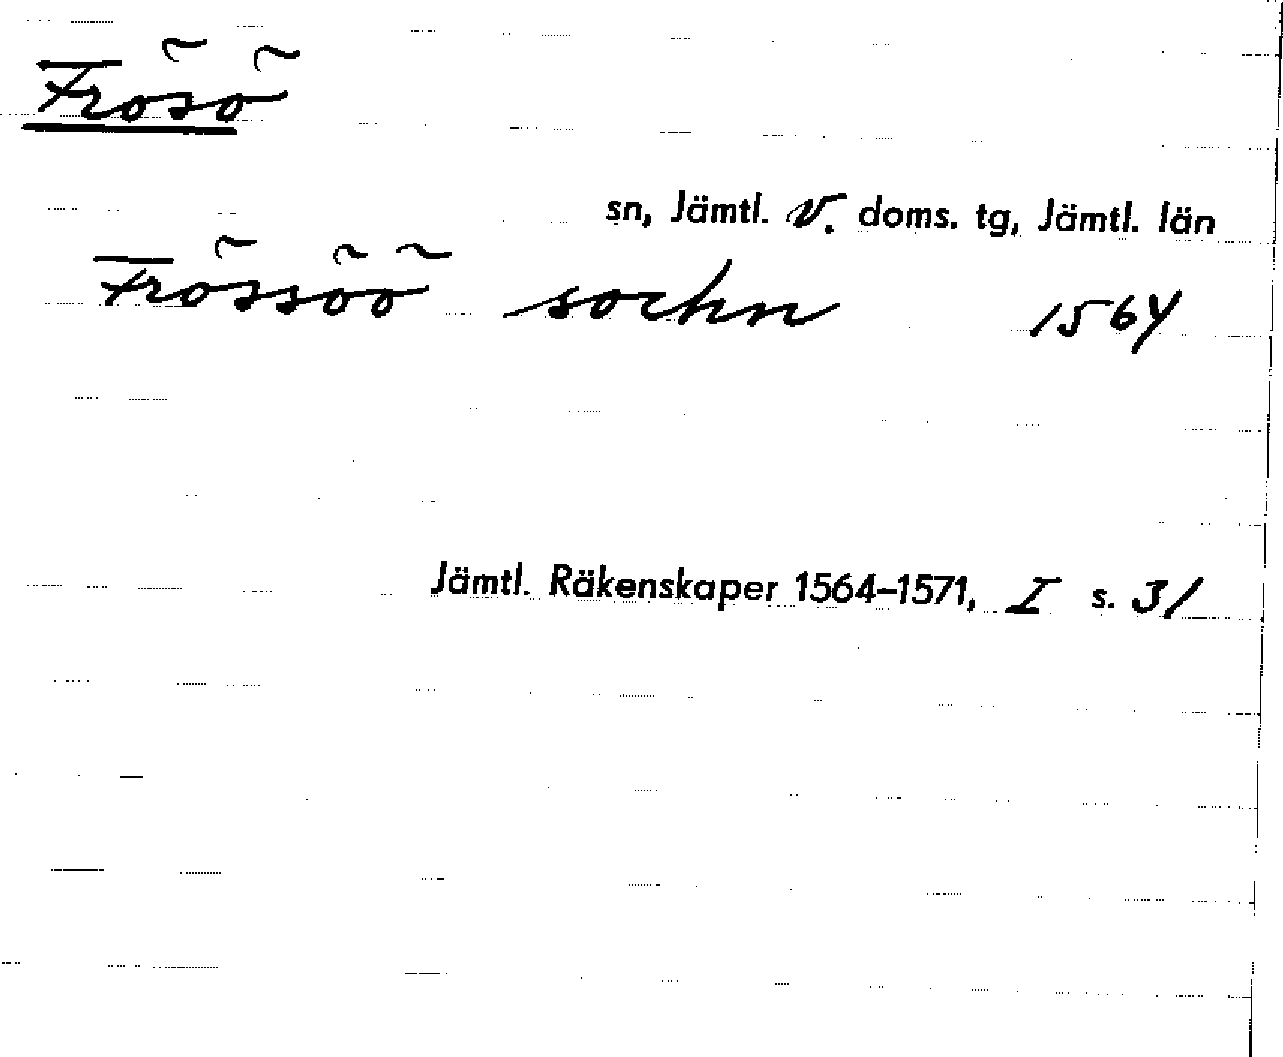 Frösö
sn, Jämtl. v. doms. tg, Jämtl. län
Frössöö sochn 1564
Jämtl. Räkenskaper 1564–1571, I s. 31